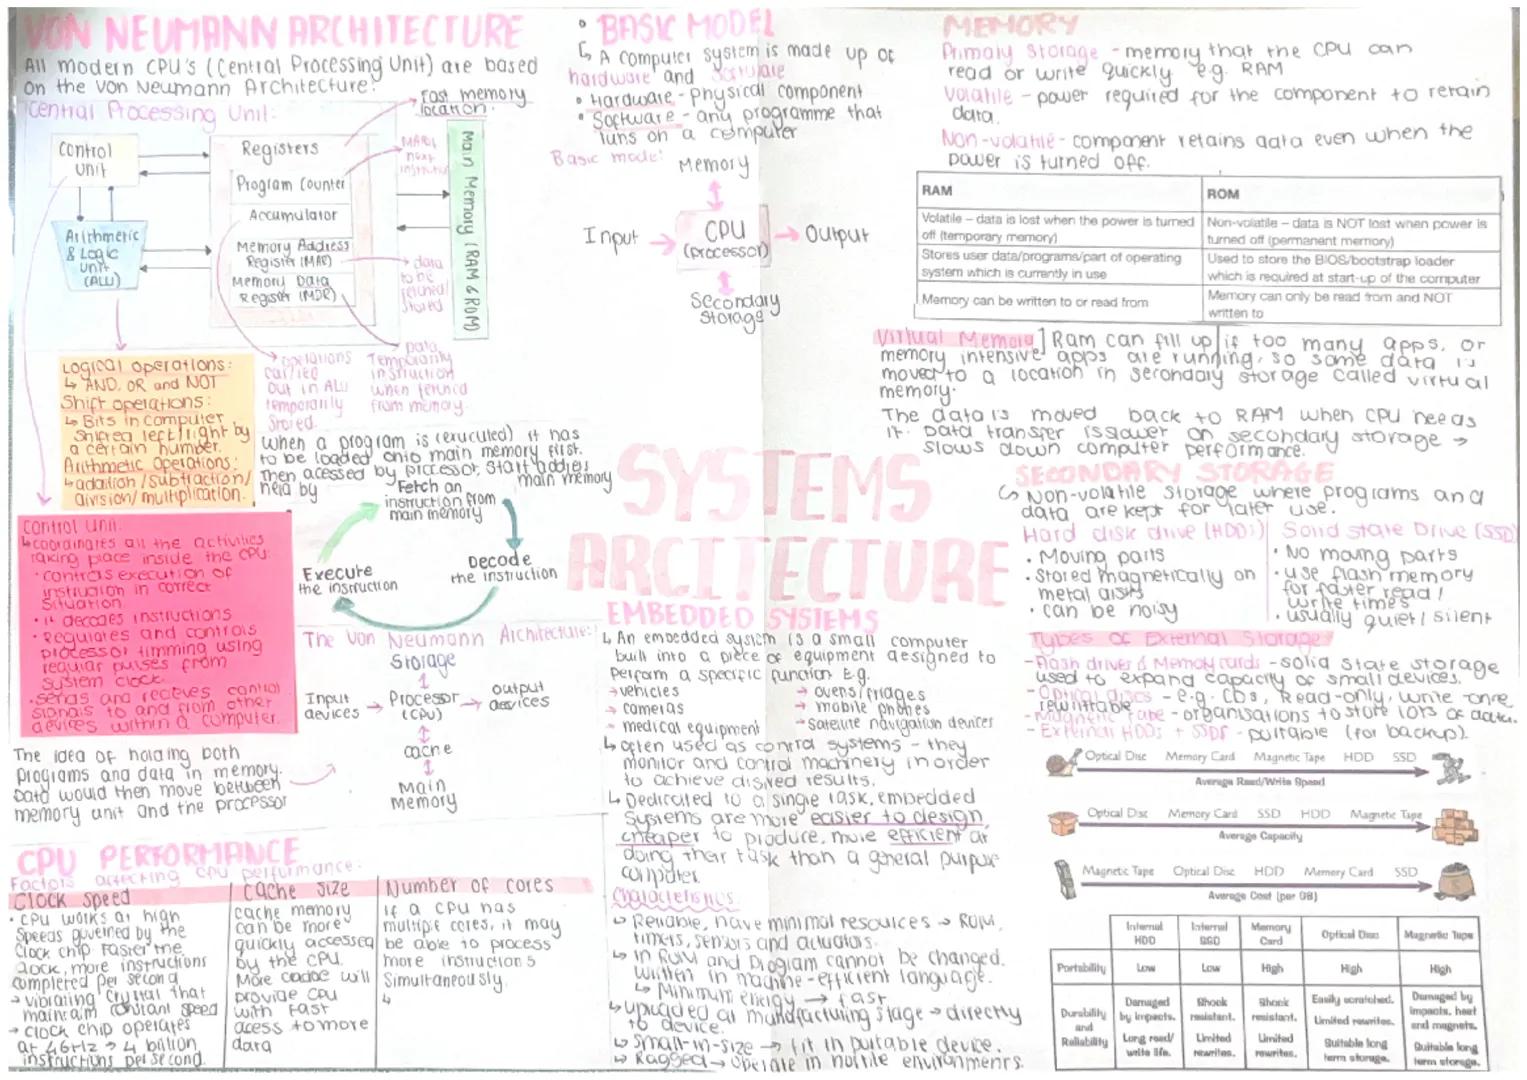 VON NEUMANN ARCHITECTURE
All modern CPU's (Central Processing Unit) are based
on the Von Neumann Architecture.
Central Processing Unit:
Fast memory
location.
Control
Unit
Registers
Program Counter
Accumulator
Memory Address
Register (MAR)
Memory Data
Register (MDR)
Arithmetic
& Logic
Unit
(ALU)
next
instruction
data
to be
fetched/
stored
Main Memory (RAM & ROM)
operations
carried
out in ALU
temporarily
stored.
Data,
Temporarily
instruction
when fetched
from memory.
Logical operations:
↳ AND, OR and NOT
Shift operations:
↳ Bits in computer
shifted left/right by
a certain number.
Arithmetic Operations:
↳ addition/subtraction/
division/multiplication.
Control Unit:
↳ coordinates all the activities
taking place inside the CPU:
• controls execution of
instruction in correct
situation
• it decodes instructions
• Regulates and controls
processor timming using
regular pulses from
system clock.
• sends and recieves control
signals to and from other
devices within a computer.
When a program is (exuculed) it has
to be loaded onto main memory first.
Then acessed by processor, start address
held by main memory
Fetch an
instruction from
main memory
Decode
the instruction
Execute
the instruction
The Von Neumann Architecture:
Storage
Input
devices
Processor
(CPU)
output
devices
cache
Main
Memory
The idea of holding both
programs and data in memory.
Data would then move between
memory unit and the processor
CPU PERFORMANCE
Factors affecting cpu performance:
Clock Speed
• CPU works at high
speeds governed by the
clock chip. Faster the
clock, more instructions
completed per second
→ vibrating crystal that
maintain constant speed
→ clock chip operates
at 4GHz → 4 billion
instructions per second.
Cache Size
cache memory
can be more
quickly accessed
by the CPU.
More cache will
provide CPU
with fast
acess to more
data
Number of cores
if a CPU has
multiple cores, it may
be able to process
more instructions
simultaneously.
• BASIC MODEL
↳ A computer system is made up of
hardware and software
• Hardware - Physical component
• Software - any programme that
runs on a computer
Basic model:
Memory
Input
CPU
(processor)
Output
Secondary
Storage
SYSTEMS
ARCITECTURE
EMBEDDED SYSTEMS
↳ An embedded system is a small computer
built into a piece of equipment designed to
perform a specific function E.g.
→ vehicles
→ cameras
→ medical equipment
→ ovens/fridges
→ mobile phones
→ satellite navigation devices
↳ often used as control systems - they
monitor and control machinery in order
to achieve disired results.
↳ Dedicated to a single task, embedded
systems are more easier to design,
cheaper to produce, more efficient at
doing their task than a general purpose
computer
Characteristics
↳ Reliable, have minimal resources → ROM,
timers, sensors and actuators.
↳ in ROM and Program cannot be changed.
Written in machine-efficient language.
↳ Minimum energy → fast
↳ uploaded at manufacturing stage → directly
to device.
↳ small-in-size → fit in portable device.
↳ Ragged → operate in hostile environments.
MEMORY
Primary Storage - memory that the CPU can
read or write quickly. e.g. RAM
Volatile - power required for the component to retain
data.
Non-volatile - component retains data even when the
power is turned off.
RAM
ROM
Volatile – data is lost when the power is turned
off (temporary memory)
Non-volatile – data is NOT lost when power is
turned off (permanent memory)
Stores user data/programs/part of operating
system which is currently in use
Used to store the BIOS/bootstrap loader
which is required at start-up of the computer
Memory can be written to or read from
Memory can only be read from and NOT
written to
Virtual Memory] Ram can fill up if too many apps, or
memory intensive apps are running, so some data is
moved to a location in secondary storage called virtual
memory.
The data is moved back to RAM when CPU needs
it. Data transfer is slower on secondary storage →
slows down computer performance.
SECONDARY STORAGE
↳ Non-volatile storage where programs and
data are kept for later use.
Hard disk drive (HDD)
• Moving parts
• Stored magnetically on
metal disks
• can be noisy
Solid state Drive (SSD)
• No moving parts
• use flash memory
for faster read/
write times
• usually quiet/silent
Types of External Storage
- Flash drives & Memory cards - solid state storage
used to expand capacity of small devices.
- Optical discs - e.g. CDs, Read-only, write once
rewrittable
- Magnetic Tape - organisations to store lots of data.
- External HDDs + SSDs - portable (for backup).
Optical Disc Memory Card Magnetic Tape HDD SSD
Average Read/Write Speed
Optical Disc Memory Card SSD HDD Magnetic Tape
Average Capacity
Magnetic Tape Optical Disc HDD Memory Card SSD
Average Cost (per GB)
Internal
HDD
Internal
SSD
Memory
Card
Optical Disc
Magnetic Tape
Portability
Low
Low
High
High
High
Durability
and
Reliability
Damaged
by impacts.
Long read/
write life.
Shock
resistant.
Limited
rewrites.
Shock
resistant.
Limited
rewrites.
Easily scratched.
Limited rewrites.
Suitable long
term storage.
Damaged by
impacts, heat
and magnets.
Suitable long
term storage.